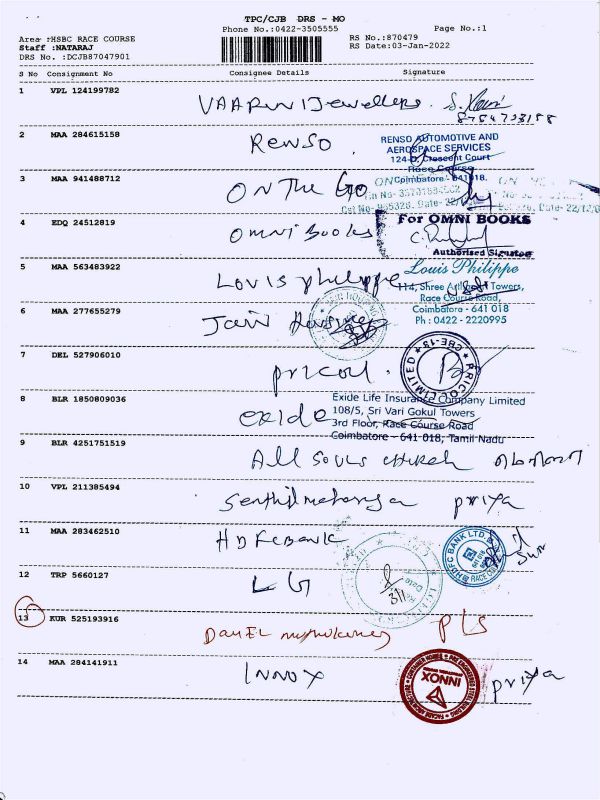 TPC/CJB DRS - MO
Phone No.:0422-3505555
Page No.:1
Area :HSBC RACE COURSE
Staff :NATARAJ
DRS No. :DCJB87047901
RS No.:870479
RS Date:03-Jan-2022
S No Consignment No Consignee Details Signature
1 VPL 124199782 Jewellers
2 MAA 284615158 RENSO
RENSO AUTOMOTIVE AND
AEROSPACE SERVICES
124-D, Crescent Court
Race Course
Coimbatore - 641 018.
3 MAA 941488712 ON The Go
4 EDQ 24512819 OMNI BOOKS
For OMNI BOOKS
Authorised Signatory
5 MAA 563483922 Louis philippe
Louis Philippe
114, Shree Towers,
Race Course Road,
Coimbatore - 641 018
Ph : 0422 - 2220995
6 MAA 277655279 Jain
7 DEL 527906010 pricol
PRICOL LIMITED CBE-18
8 BLR 1850809036 exide
Exide Life Insurance Company Limited
108/5, Sri Vari Gokul Towers
3rd Floor, Race Course Road
Coimbatore - 641 018, Tamil Nadu
9 BLR 4251751519 All souls church
10 VPL 211385494 priya
11 MAA 283462510 HDFC BANK
HDFC BANK LTD.
12 TRP 5660127 LG
13 KUR 525193916 PLS
14 MAA 284141911 INNOX priya
INNOX